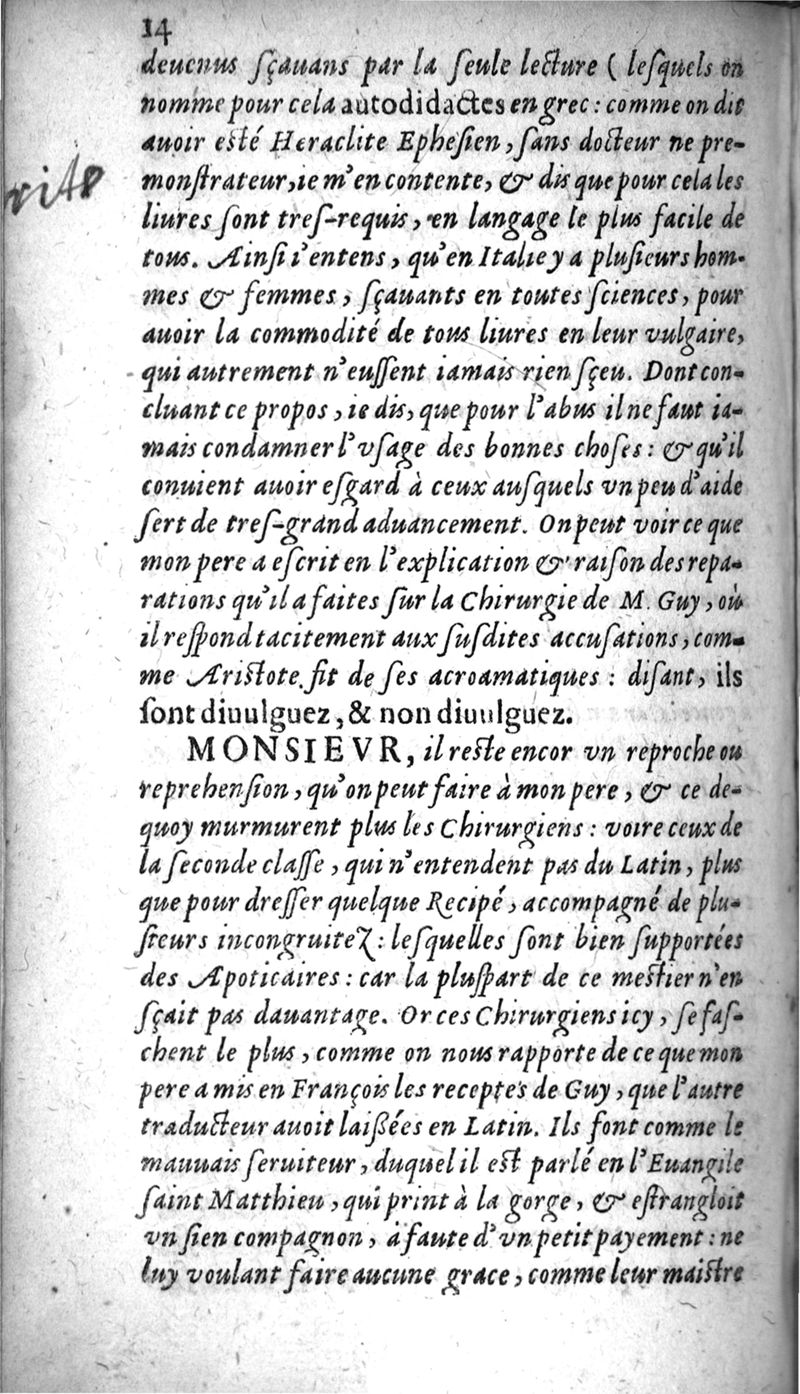 14
deuenus sçauans par la seule lecture (lesquels on
nomme pour cela autodidactes en grec : comme on dit
auoir esté Heraclite Ephesien, sans docteur ne pre-
monstrateur, ie m'en contente, & dis que pour cela les
liures sont tres-requis, en langage le plus facile de
tous. Ainsi i'entens, qu'en Italie y a plusieurs hom-
mes & femmes, sçauants en toutes sciences, pour
auoir la commodité de tous liures en leur vulgaire,
qui autrement n'eussent iamais rien sçeu. Dont con-
cluant ce propos, ie dis, que pour l'abus il ne faut ia-
mais condamner l'vsage des bonnes choses : & qu'il
conuient auoir esgard à ceux ausquels vn peu d'aide
sert de tres-grand aduancement. On peut voir ce que
mon pere a escrit en l'explication & raison des repa-
rations qu'il a faites sur la Chirurgie de M. Guy, où
il respond tacitement aux susdites accusations, com-
me Aristote fit de ses acroamatiques : disant, ils
sont diuulguez, & non diuulguez.
MONSIEVR, il reste encor vn reproche ou
reprehension, qu'on peut faire à mon pere, & ce de-
quoy murmurent plus les Chirurgiens : voire ceux de
la seconde classe, qui n'entendent pas du Latin, plus
que pour dresser quelque Recipé, accompagné de plu-
sieurs incongruitez : lesquelles sont bien supportées
des Apoticaires : car la pluspart de ce mestier n'en
sçait pas dauantage. Or ces Chirurgiens icy, se fas-
chent le plus, comme on nous rapporte de ce que mon
pere a mis en François les receptes de Guy, que l'autre
traducteur auoit laissées en Latin. Ils font comme le
mauuais seruiteur, duquel il est parlé en l'Euangile
saint Matthieu, qui print à la gorge, & estrangloit
vn sien compagnon, à faute d'vn petit payement : ne
luy voulant faire aucune grace, comme leur maistre